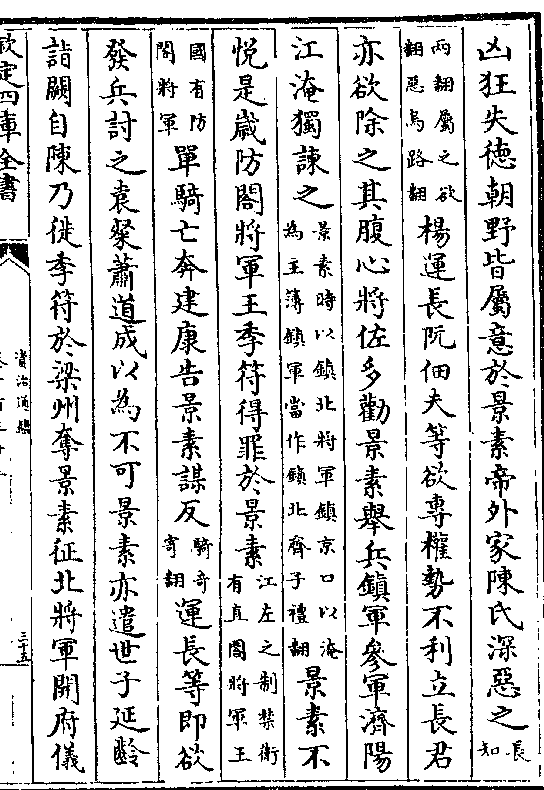 凶狂失徳朝野皆屬意於景素帝外家陳氏深惡之長知
兩翻屬之欲翻惡烏路翻楊運長阮佃夫等欲專權勢不利立長君
亦欲除之其腹心將佐多勸景素舉兵鎮軍參軍濟陽
江淹獨諫之景素時以鎮北將軍鎮京口以淹為主簿鎮軍當作鎮北齊子禮翻景素不
悦是嵗防閤將軍王季符得罪於景素江左之制禁衛有直閤將軍王
國有防閤將軍單騎亡奔建康告景素謀反騎奇寄翻運長等即欲
發兵討之袁粲蕭道成以為不可景素亦遣世子延齡
詣闕自陳乃徙季符於梁州奪景素征北將軍開府儀
欽定四庫全書
資治通鑑
三十五